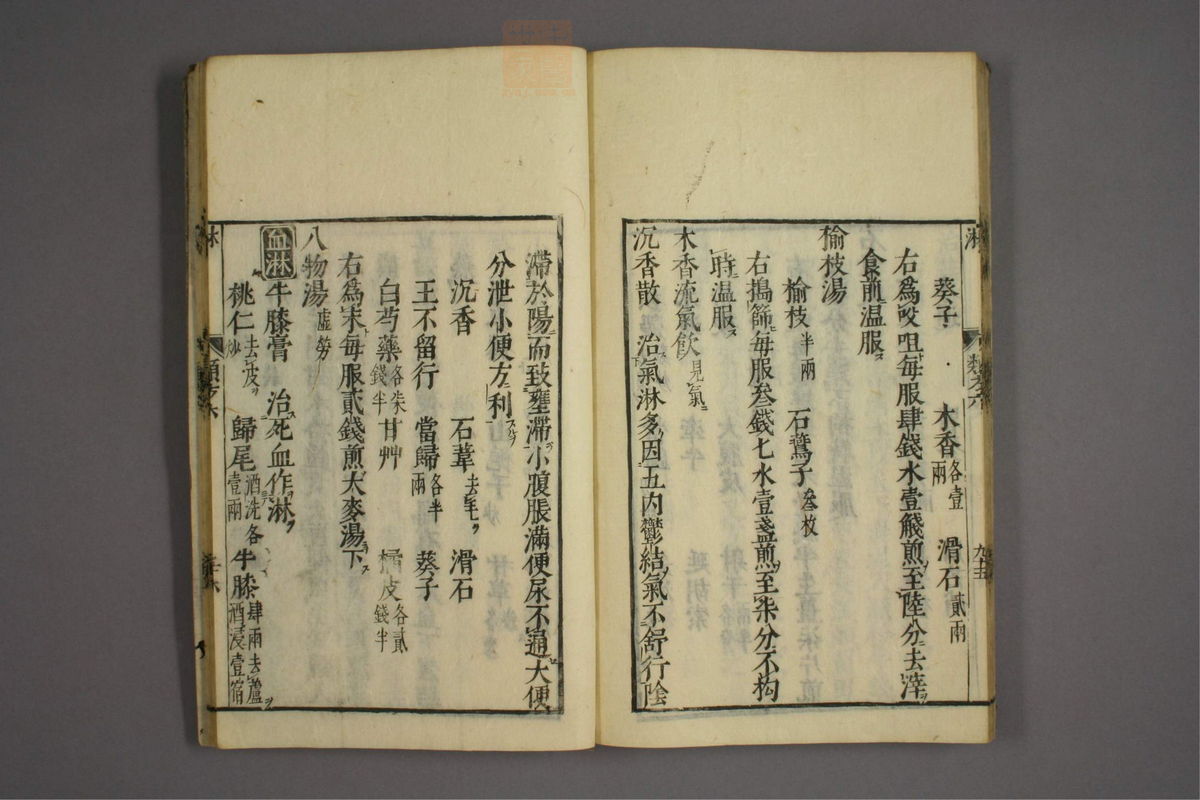 葵子 木香各壹兩 滑石貳兩
右爲㕮咀每服肆錢水壹醆煎至陸分去滓
食前温服
榆枝湯
榆枝半兩 石鷰子叁枚
右搗篩每服叁錢七水壹盞煎至柒分不拘
時温服
木香流氣飲見氣
沉香散 治氣淋多因五内鬱結氣不舒行陰
滯於陽而致壅滯小腹脹滿便尿不通大便
分泄小便方利
沉香 石葦去毛 滑石
王不留行 當歸各半兩 葵子
白芍藥各柒錢半 甘艸 橘皮各貳錢半
右爲末每服貳錢煎大麥湯下
八物湯虛勞
血淋 牛膝膏 治死血作淋
桃仁去皮炒 歸尾酒洗各壹兩 牛膝肆兩去蘆酒浸壹宿